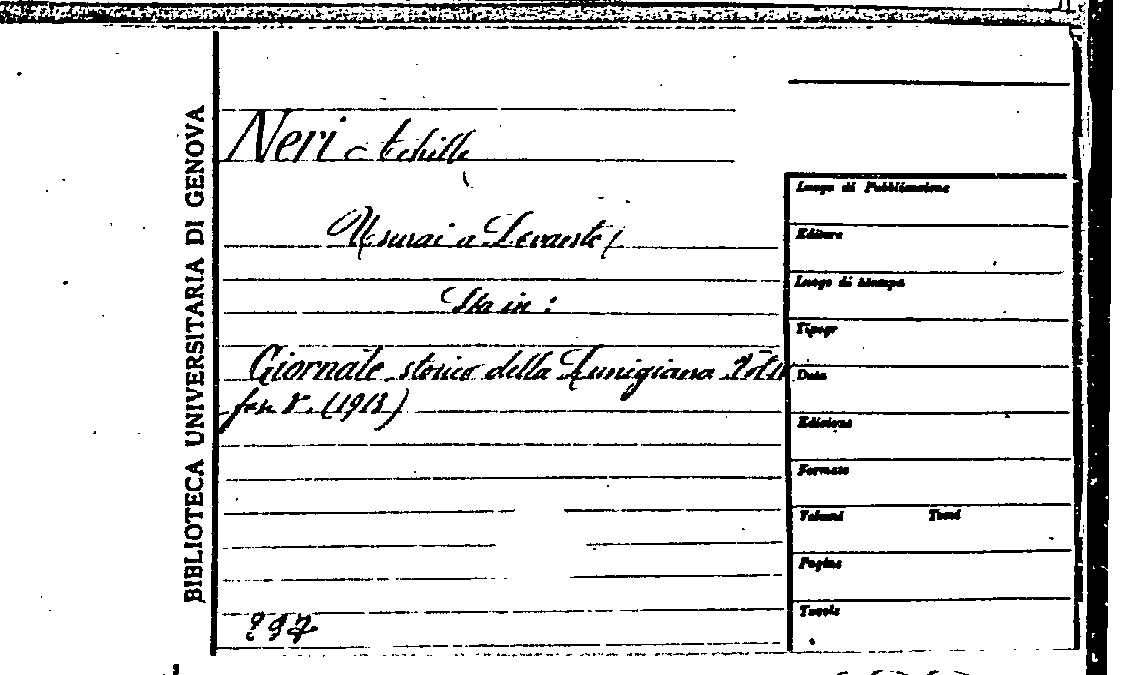 BIBLIOTECA UNIVERSITARIA DI GENOVA
Neri Achille
Usurai a Levante/
Sta in:
Giornale storico della Lunigiana
(1913)
Luogo di Pubblicazione
Editore
Luogo di stampa
Tipogr
Data
Edizione
Formato
Volumi Tomi
Pagine
Tavole